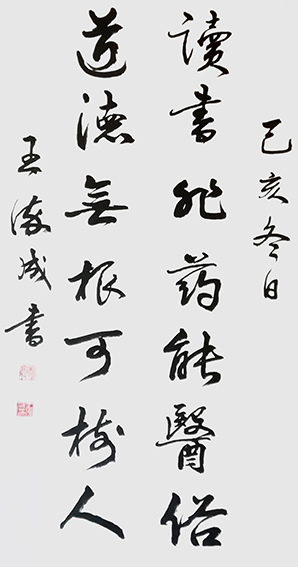 己亥冬日
讀書非药能醫俗
道德無根可樹人
王成書